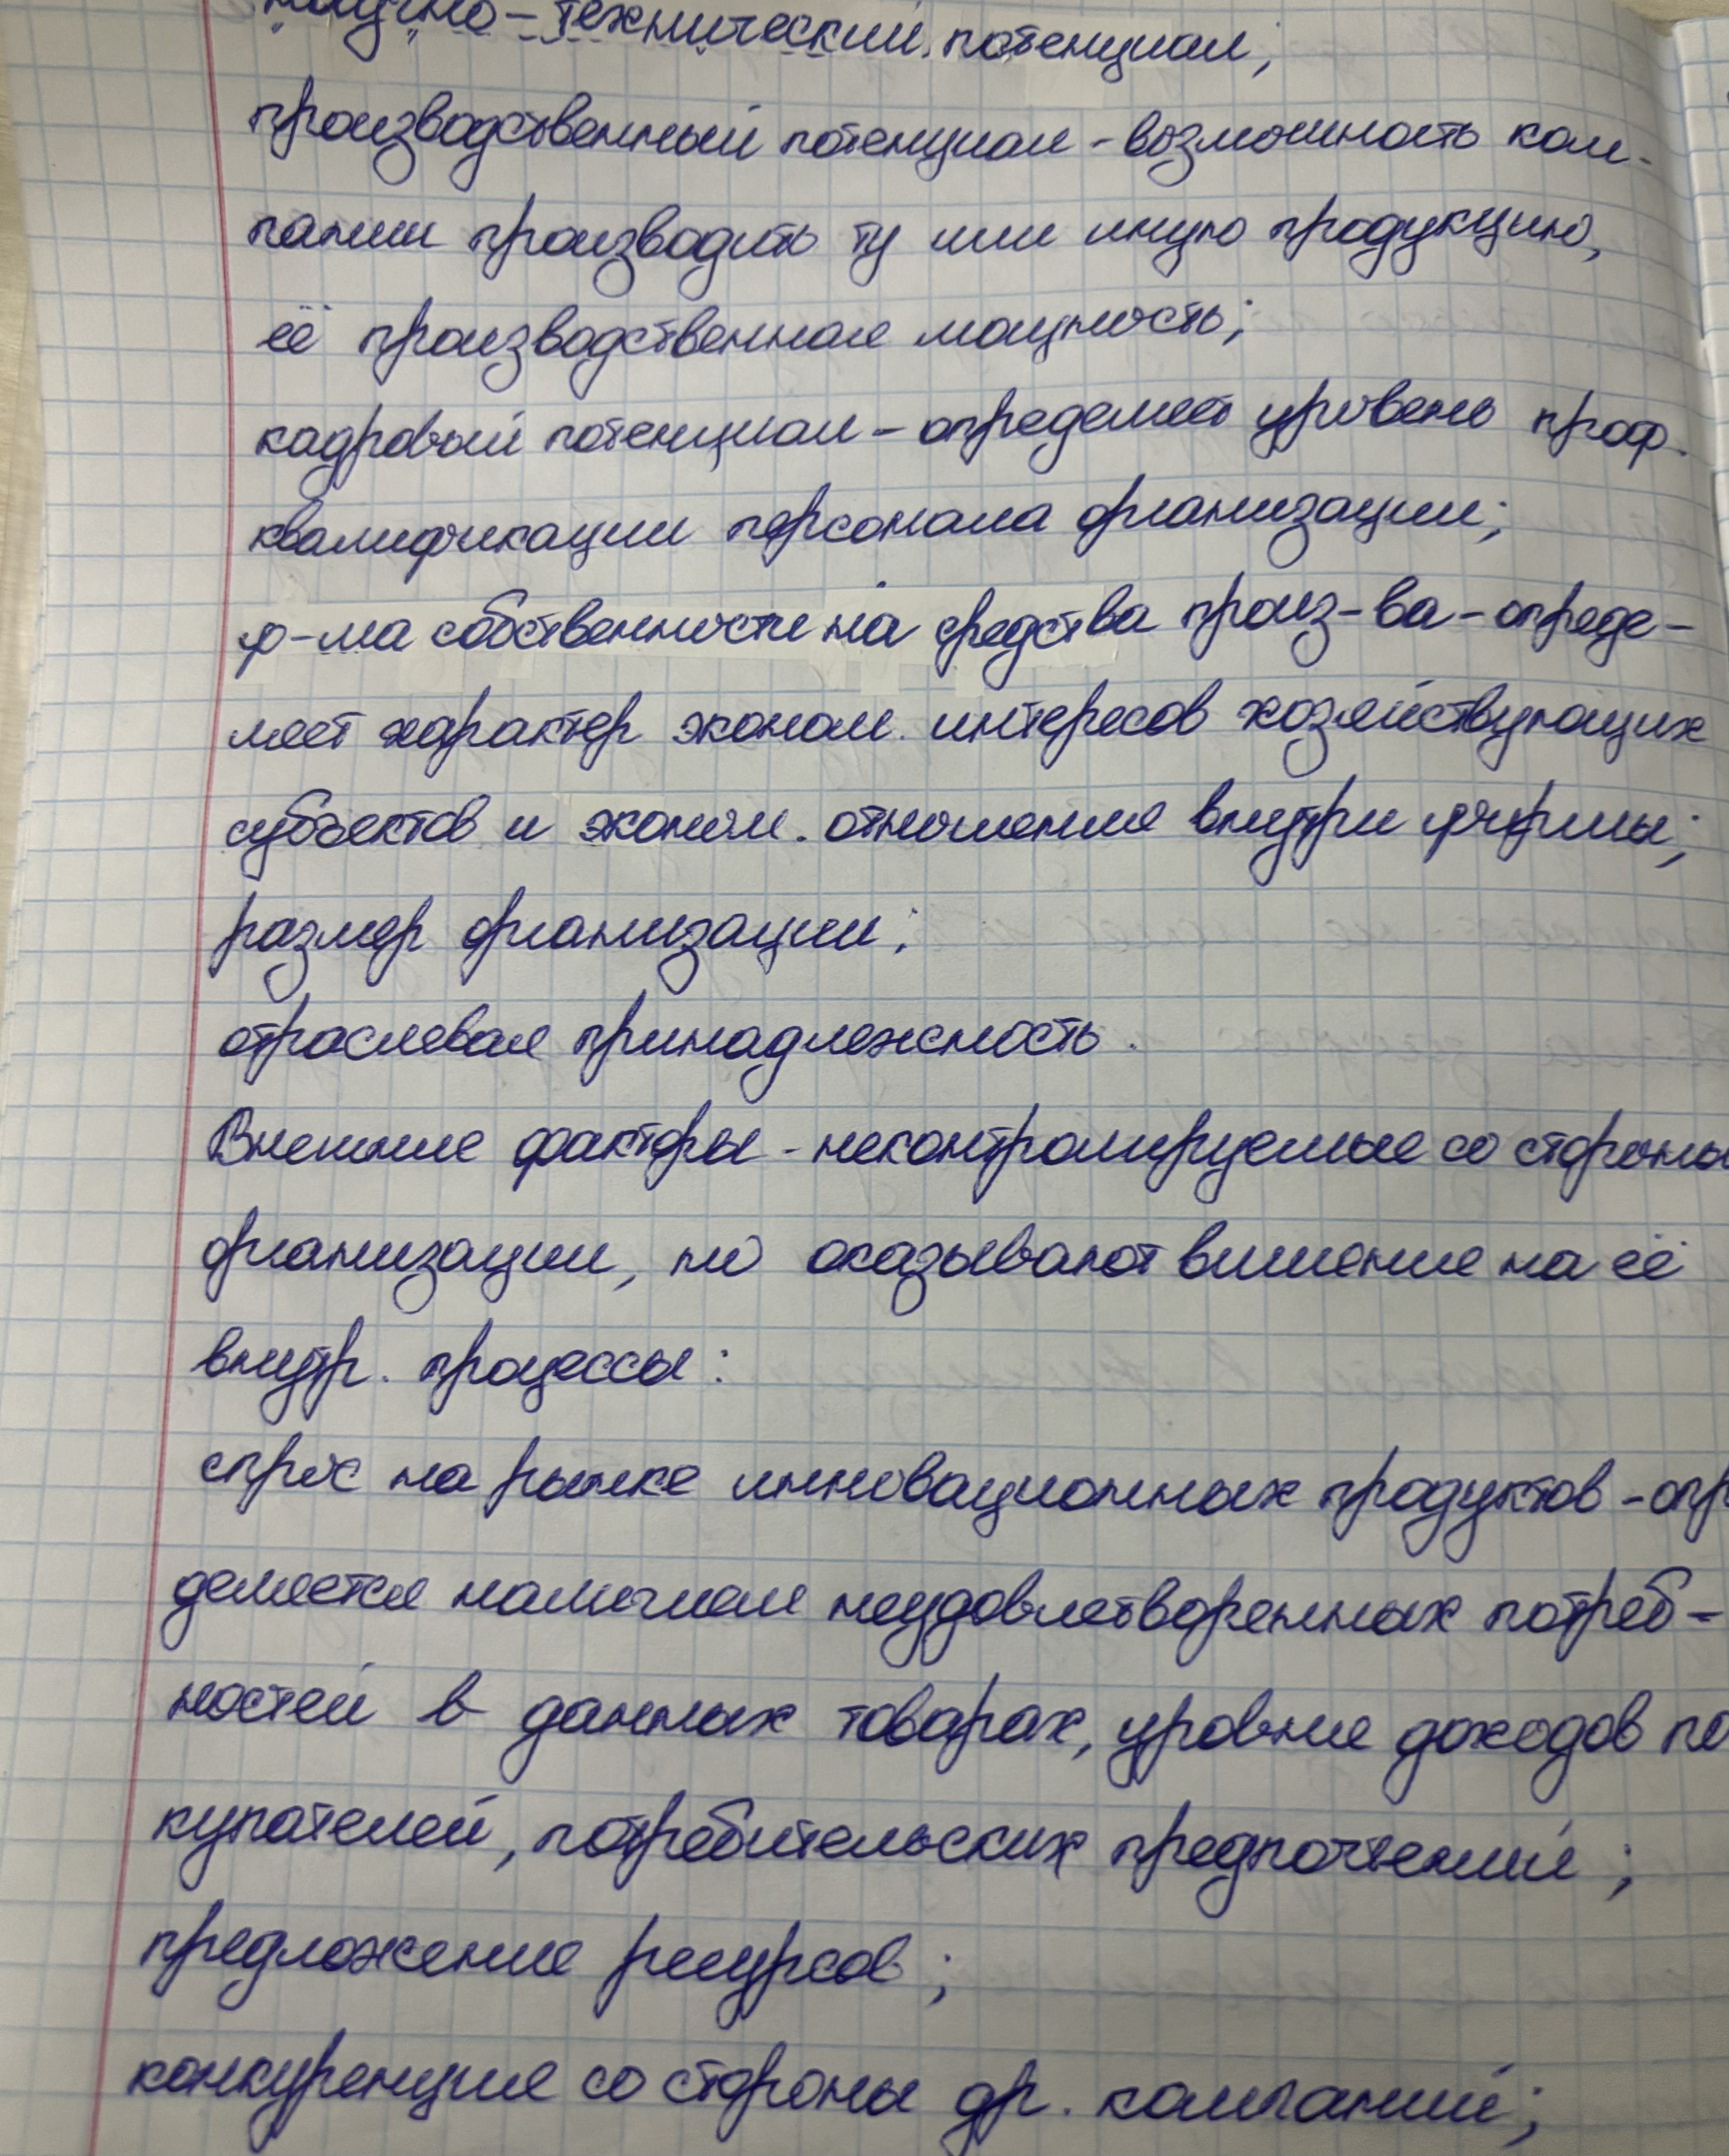 научно-технический потенциал;
производственный потенциал - возможность ком-
пании производить ту или иную продукцию,
её производственная мощность;
кадровый потенциал - определяет уровень проф.
квалификации персонала организации;
ф-ма собственности на средства произ-ва - опреде-
ляет характер эконом. интересов хозяйствующих
субъектов и эконом. отношения внутри фирмы;
размер организации;
отраслевая принадлежность.
Внешние факторы - неконтролируемые со стороны
организации, но оказывают влияние на её
внутр. процессы:
спрос на рынке инновационных продуктов - опр
деляется наличием неудовлетворенных потреб-
ностей в данных товарах, уровня доходов по
купателей, потребительских предпочтений;
предложение ресурсов;
конкуренция со стороны др. компаний;